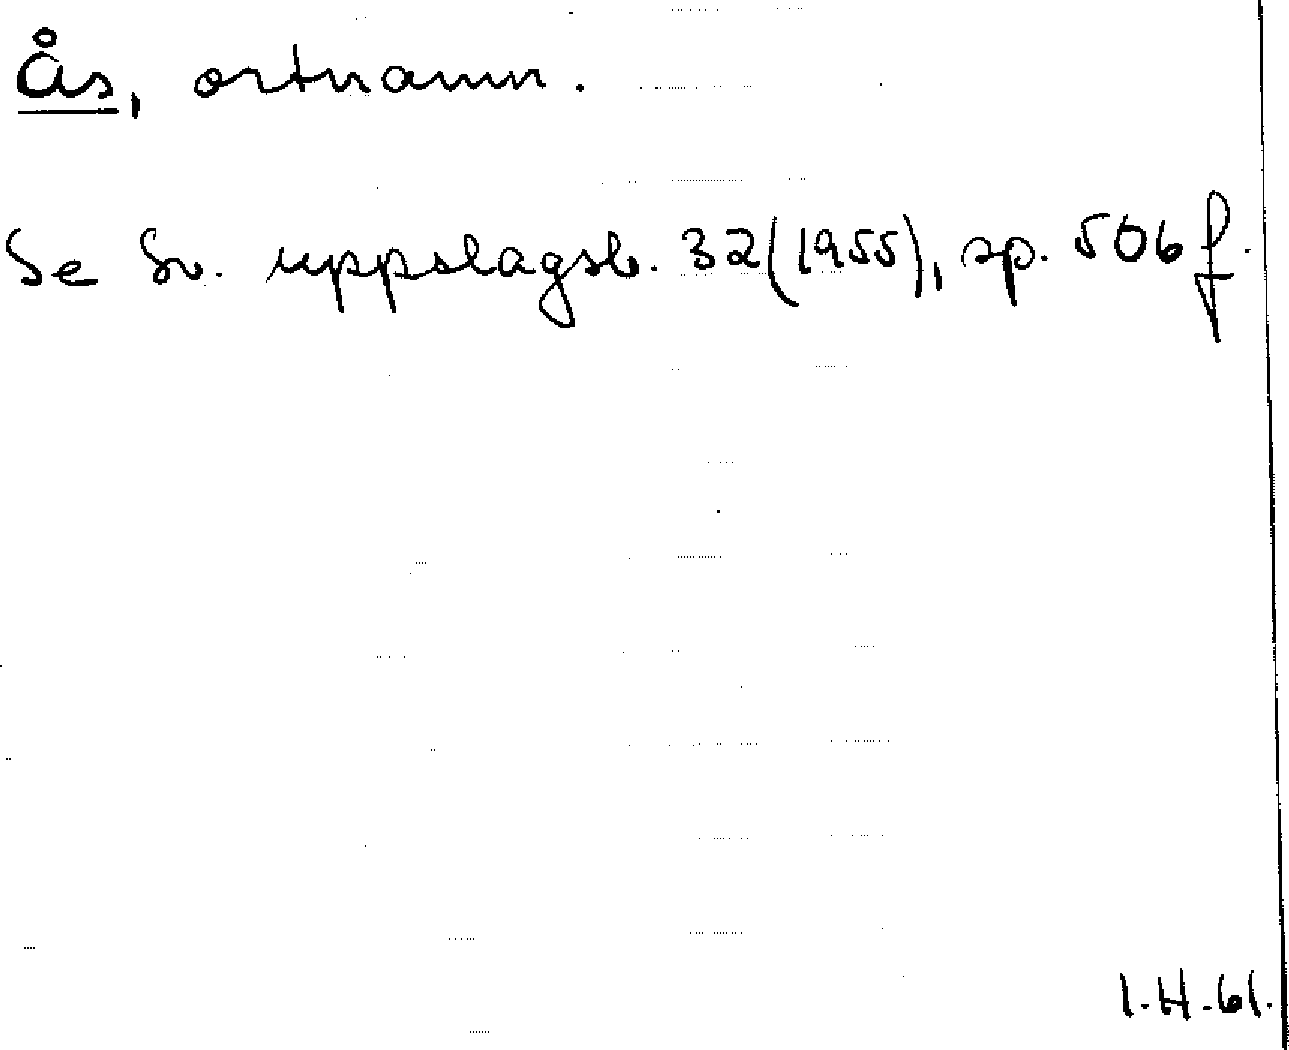 Ås, ortnamn.
Se Sv. uppslagsb. 32(1955), sp. 506 f.
I.H.61.